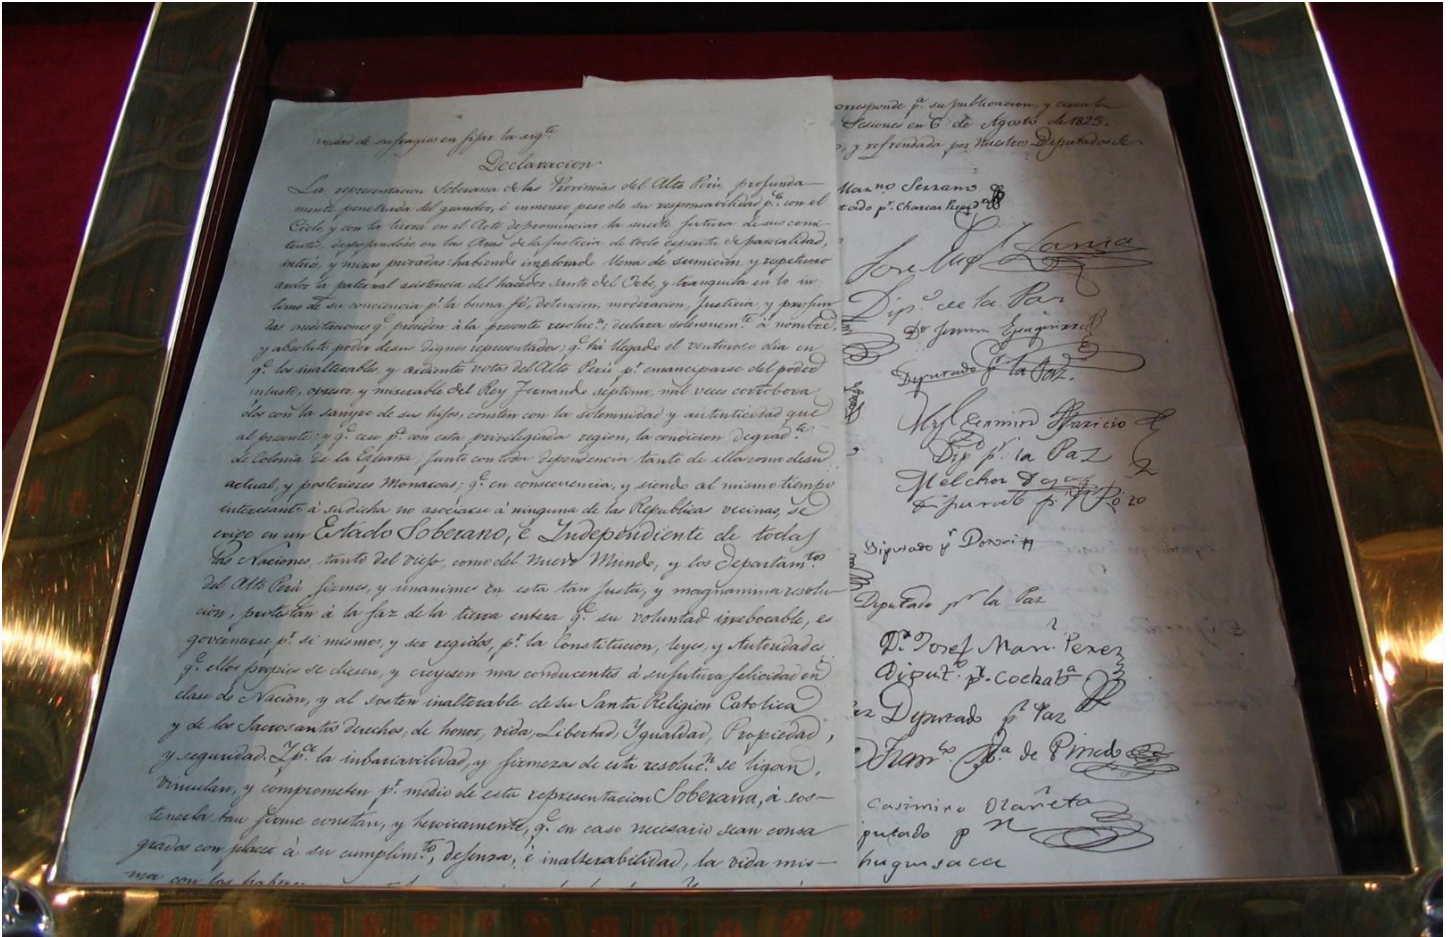 nidad de sufragios en fijar la sigte.
Declaracion
La representacion Soberana de las Provincias del Alto Perú, profunda-
mente penetrada del grandor, é inmenso peso de su responsabilidad pa. con el
Cielo, y con la tierra en el Acto de pronunciar la suerte futura de sus comi
tentes, despojandose en las Aras de la Justicia de todo espiritu de parcialidad,
interés, y miras privadas: habiendo implorado llena de sumicion, y respetuoso
ardor la paternal asistencia del hacedor Santo del Orbe, y tranquila en lo in
timo de su conciencia pr. la buena fé, detencion, moderacion, Justicia, y profun
das meditaciones qe. preciden á la presente resolucn., declara solemnemte. á nombre,
y absoluto poder de sus dignos representados: qe. há llegado el venturoso dia en
qe. los inalterables, y ardientes votos del Alto Perú pr. emanciparse del poder
injusto, opresor, y miserable del Rey Fernando septimo, mil veces corrobora
dos con la sangre de sus hijos, consten con la solemnidad y autenticidad que
al presente, y qe. cese pa. con esta privilegiada region, la condicion degradte.
de Colonia de la España, junto con toda dependencia tanto de ella como de su
actual, y posteriores Monarcas: qe. en consecuencia, y siendo al mismo tiempo
interesante á su dicha no asociarse á ninguna de las Republicas vecinas, se
erige en un Estado Soberano, é Independiente de todas
las Naciones, tanto del viejo, como del nuevo Mundo, y los Departamtos
del Alto Perú firmes, y unanimes en esta tan justa, y magnanima resolu-
cion, protestan á la faz de la tierra entera qe. su voluntad irrebocable, es
governarse pr. si mismos, y ser regidos, pr. la Constitucion, leyes, y Autoridades
qe. ellos propios se diesen, y creyesen mas conducentes á su futura felicidad en
clase de Nacion, y al sosten inalterable de su Santa Religion Catolica
y de los Sacrosantos derechos, de honor, vida, Libertad, Ygualdad, Propiedad,
y seguridad. Y pa. la inbariavilidad, y firmeza de esta resolucn. se ligan,
vinculan, y comprometen pr. medio de esta representacion Soberana, á sos-
tenerla tan firme constan, y heroicamente, qe. en caso necesario sean consa
grados con placer á su cumplimto., defensa, é inalterabilidad, la vida mis-
ma con los haberes
orresponde pa. su publicacion, y circula
Sesiones en 6 de Agosto de 1825.
y refrendada por Nuestros Diputados Se
Marno Serrano
tado pr. Charcas
Jose Migl Lanza
Dipo. de la Paz
Dor
Deputado pr la Paz.
Aparicio
Dip pr. la Paz
Melchor
Diputado pr
Diputado pr. la Paz
Dr. Josef Man. Perez
Diput. pr. Cochaba
Deputado pr Paz
de Pinedo
Casimiro Olañeta
putado pr
huquisaca